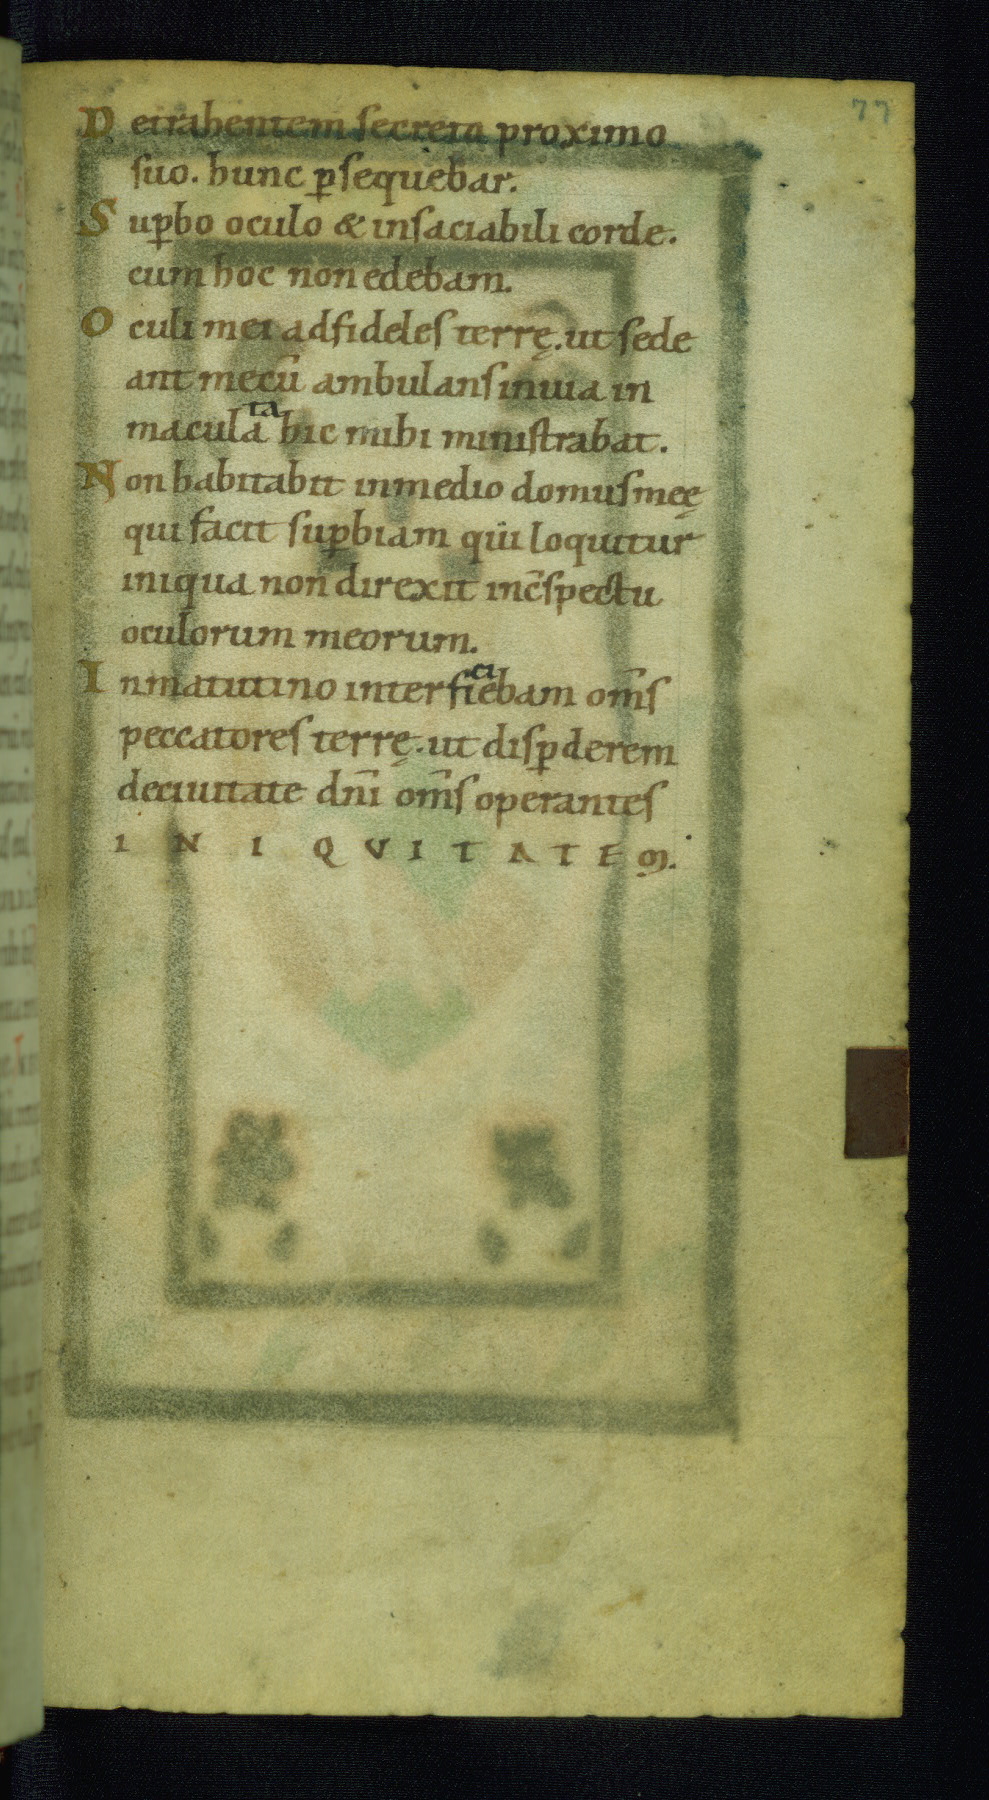 77
Detrahentem secreta proximo
suo. hunc p̲sequebar.
Sup̲bo oculo & insaciabili corde.
cum hoc non edebam.
Oculi mei ad fideles terrę. ut sede
ant mecū ambulans in uia in
maculata hic mihi ministrabat.
Non habitabit in medio domus meę
qui facit sup̲biam qui loquitur
iniqua non direxit in c̄spectu
oculorum meorum.
In matutino interficiebam om̄s
peccatores terrę. ut disp̲derem
de ciuitate dn̄i om̄s operantes
INIQUITATEM.